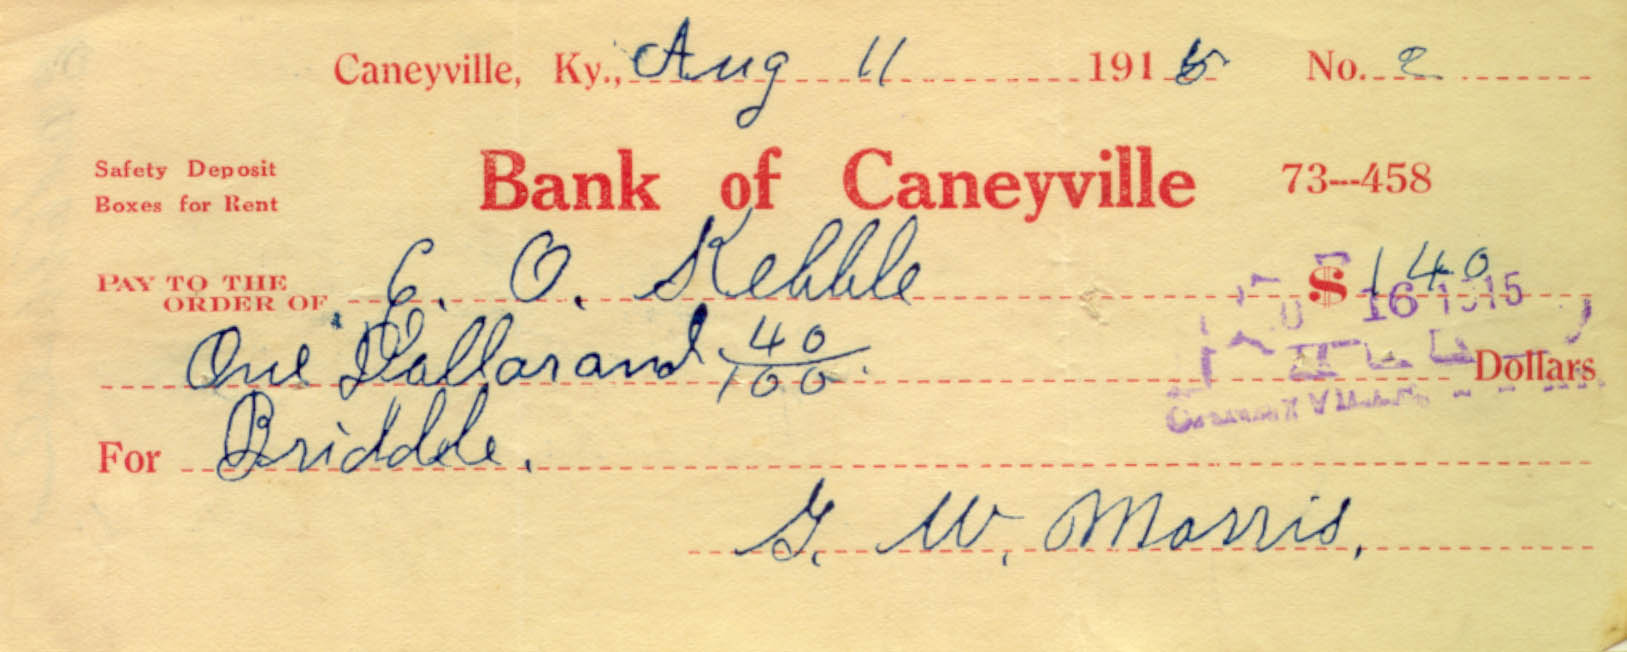 Caneyville, Ky., Aug 11 1915 No. 2
Safety Deposit
Boxes for Rent
Bank of Caneyville 73--458
PAY TO THE
ORDER OF E. O. Kebble $ 1 40
16 1915
One Dollar and 40/100 Dollars
For Briddle.
G. W. Morris,